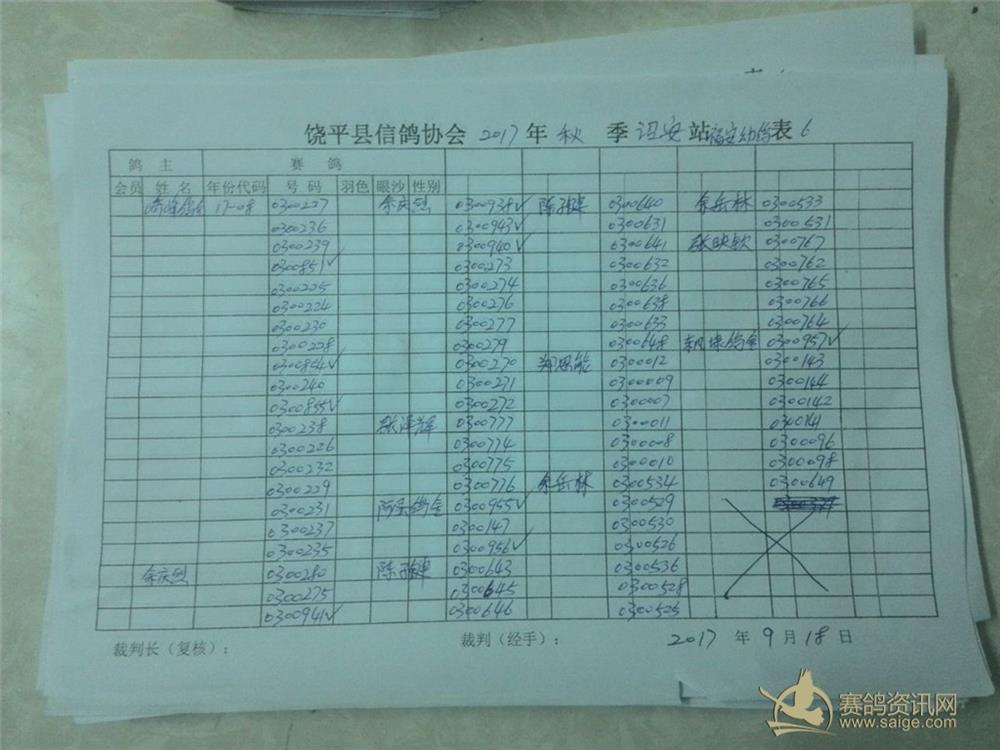 饶平县信鸽协会 2017 年 秋 季 诏安 站 福安幼鸽 表 6
鸽 主 赛 鸽
会员 姓 名 年份代码 号 码 羽色 眼沙 性别
17-08 0300227 余庆烈 0300938✓ 0300640 余岳林 0300533
0300236 0300943✓ 0300631 0300531
0300239 0300940✓ 0300641 0300767
0300851✓ 0300273 0300632 0300762
0300225 0300274 0300636 0300765
0300224 0300276 0300638 0300766
0300230 0300277 0300633 0300764
0300228 0300279 0300648 0300957✓
0300854✓ 0300270 0300012 0300143
0300240 0300271 0300009 0300144
0300855✓ 0300272 0300007 0300142
0300238 张泽辉 0300777 0300011 0300141
0300226 0300774 0300008 0300096
0300232 0300775 0300010 0300098
0300229 0300776 余岳林 0300534 0300649
0300231 0300955✓ 0300529
0300237 0300147 0300530
0300235 0300956✓ 0300526
余庆烈 0300280 0300643 0300536
0300275 0300645 0300528
0300941✓ 0300646 0300525
裁判长（复核）： 裁判（经手）： 2017 年 9 月 18 日
赛鸽资讯网
www.saige.com